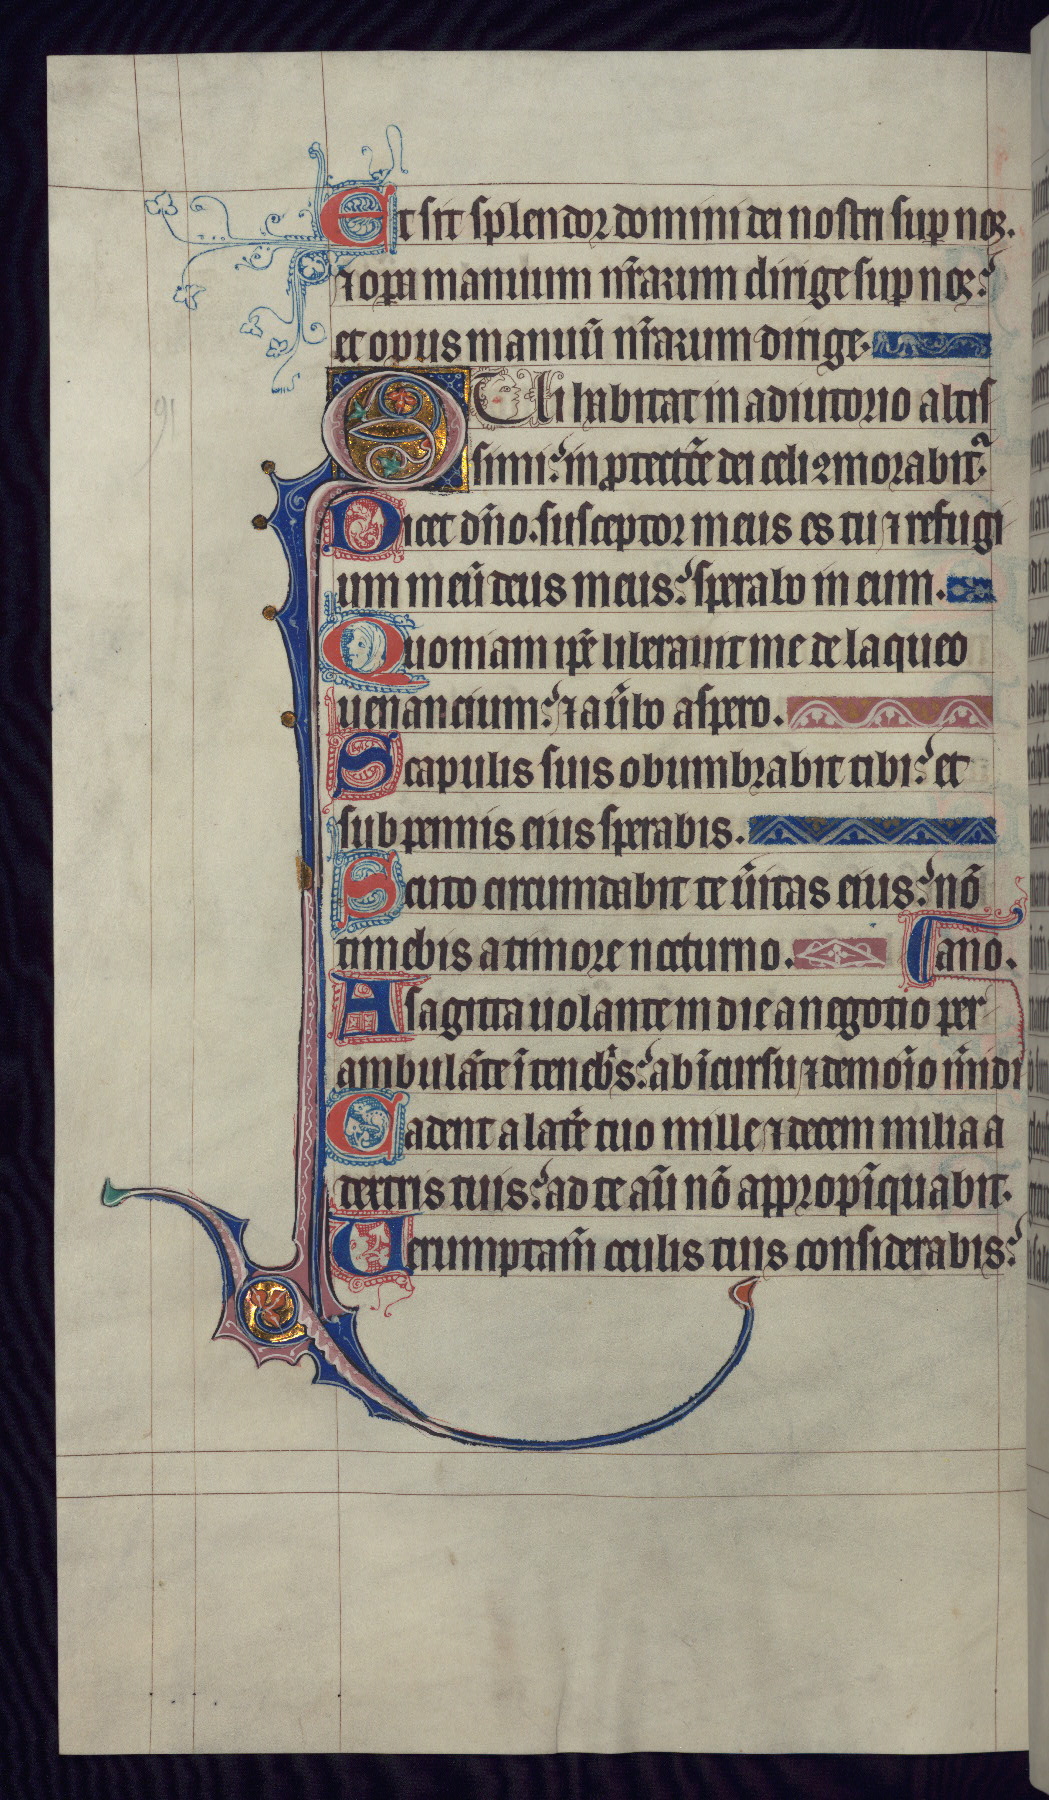 Et sit splendor domini dei nostri sup nos.
⁊ opa manuum nr̄arum dirige sup nos:
et opus manuū nr̄arum dirige.
Qui habitat in adiutorio altis
simi: in ꝓtectōe dei celi ꝯmorabit᷑.
Dicet dn̄o. susceptor meus es tu ⁊ refugi
um meū deus meus: sperabo in eum.
Quoniam ip̄e liberauit me de laqueo
uenancium: ⁊ a ūbo aspero.
Scapulis suis obumbrabit tibi: et
sub pennis eius sperabis.
Scuto circumdabit te ūitas eius: nō
timebis a timore nocturno. ano.
A sagitta uolante in die a negotio per
ambulāte ī teneb̄s: ab īcursu ⁊ demoīo m̄idi
Cadent a latē tuo mille ⁊ decem milia a
dextris tuis: ad te aū nō appropīquabit.
Uerumptam̄ oculis tuis considerabis:
91